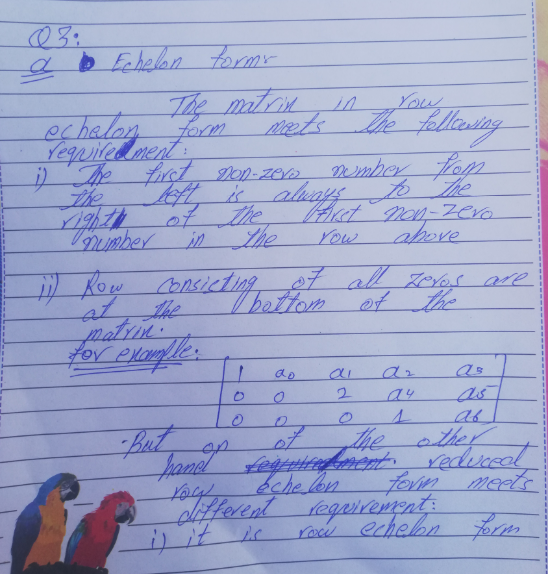 Q3:
a Echelon form:-
The matrix in row
echelon form meets the following
requirement:
i) The first non-zero number from
the left is always to the
right of the first non-zero
number in the row above
ii) Row consicting of all zeros are
at the bottom of the
matrix.
for example:
1 a0 a1 a2 a3
0 0 2 a4 a5
0 0 0 1 a6
But on of the other
hand requirement. reduced
row echelon form meets
different requirement:
i) it is row echelon form